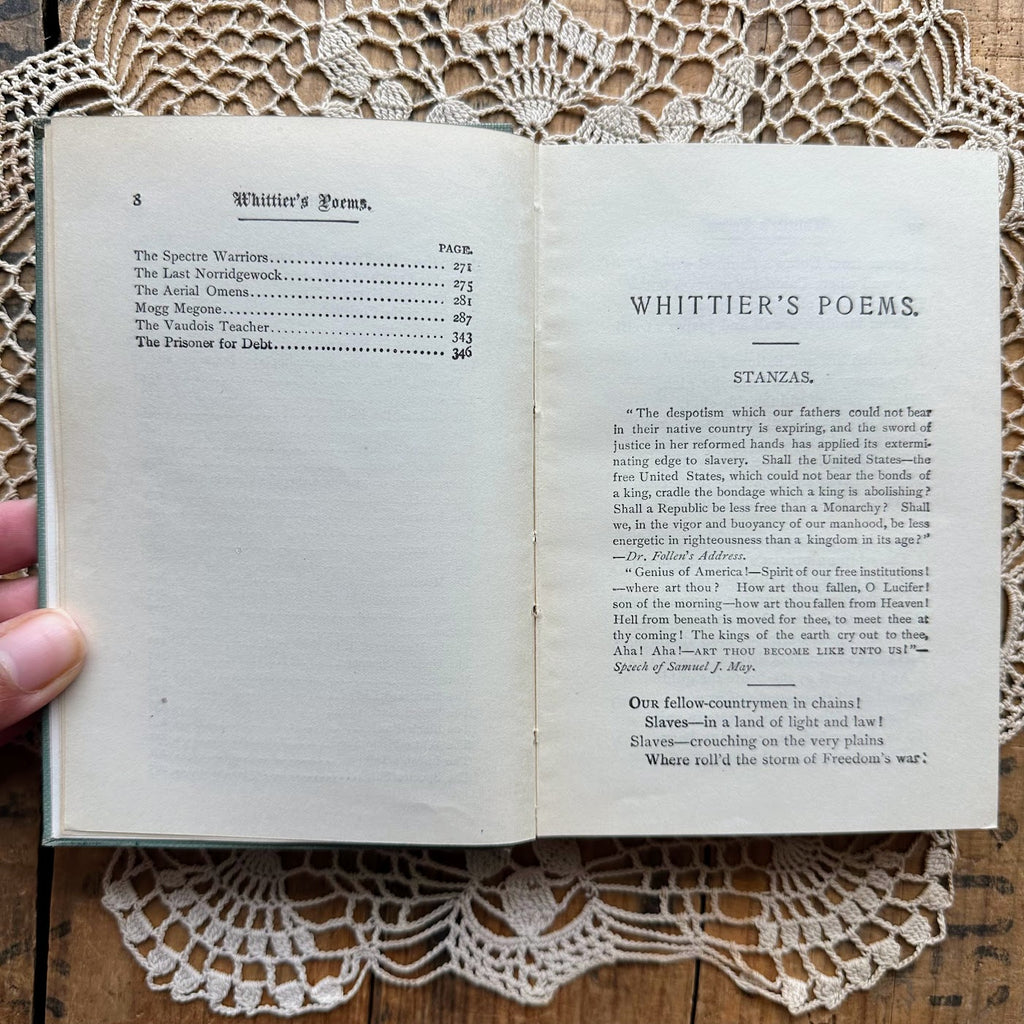 8 Whittier's Poems.
PAGE.
The Spectre Warriors........................ 271
The Last Norridgewock........................ 275
The Aerial Omens........................ 281
Mogg Megone........................ 287
The Vaudois Teacher........................ 343
The Prisoner for Debt........................ 346
WHITTIER'S POEMS.
STANZAS.
“ The despotism which our fathers could not bear
in their native country is expiring, and the sword of
justice in her reformed hands has applied its extermi-
nating edge to slavery. Shall the United States—the
free United States, which could not bear the bonds of
a king, cradle the bondage which a king is abolishing?
Shall a Republic be less free than a Monarchy? Shall
we, in the vigor and buoyancy of our manhood, be less
energetic in righteousness than a kingdom in its age?”
—Dr. Follen's Address.
“ Genius of America!—Spirit of our free institutions!
—where art thou? How art thou fallen, O Lucifer!
son of the morning—how art thou fallen from Heaven!
Hell from beneath is moved for thee, to meet thee at
thy coming! The kings of the earth cry out to thee,
Aha! Aha!—ART THOU BECOME LIKE UNTO US!”—
Speech of Samuel J. May.
OUR fellow-countrymen in chains!
Slaves—in a land of light and law!
Slaves—crouching on the very plains
Where roll'd the storm of Freedom's war!